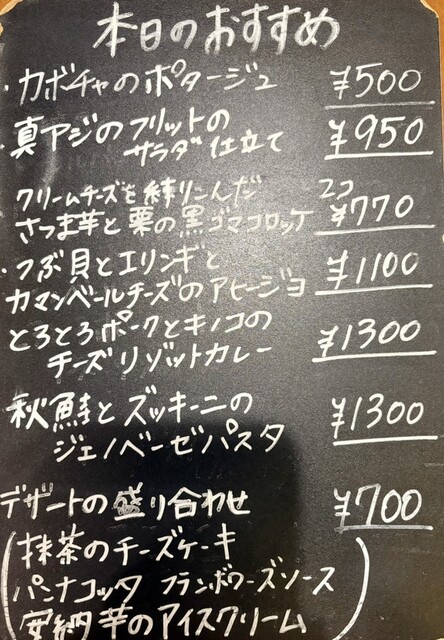 本日のおすすめ
・カボチャのポタージュ ¥500
・真アジのフリットの
サラダ仕立て ¥950
クリームチーズを練りこんだ 2コ
さつま芋と栗の黒ゴマコロッケ ¥770
・つぶ貝とエリンギと
カマンベールチーズのアヒージョ ¥1100
とろとろポークとキノコの
チーズリゾットカレー ¥1300
秋鮭とズッキーニの
ジェノベーゼパスタ ¥1300
デザートの盛り合わせ ¥700
(抹茶のチーズケーキ
パンナコッタ フランボワーズソース
安納芋のアイスクリーム)